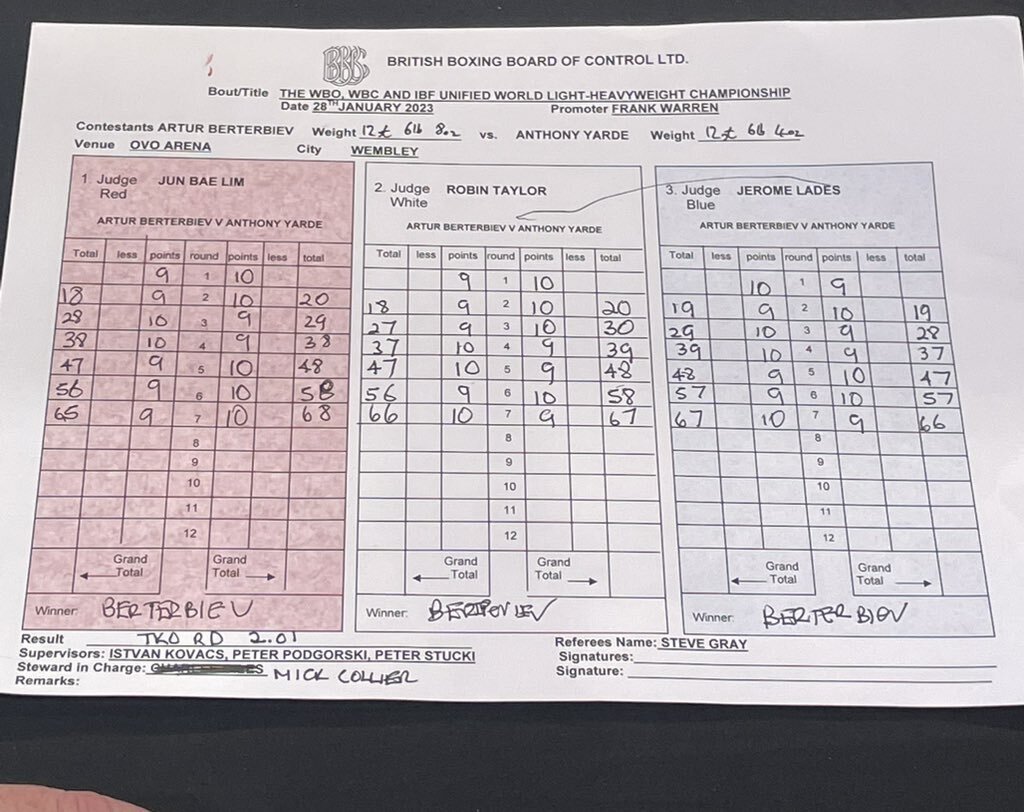 BBBC BRITISH BOXING BOARD OF CONTROL LTD.
Bout/Title THE WBO, WBC AND IBF UNIFIED WORLD LIGHT-HEAVYWEIGHT CHAMPIONSHIP
Date 28TH JANUARY 2023 Promoter FRANK WARREN
Contestants ARTUR BERTERBIEV Weight 12st 6lb 8oz vs. ANTHONY YARDE Weight 12st 6lb 4oz
Venue OVO ARENA City WEMBLEY
1. Judge JUN BAE LIM
Red
ARTUR BERTERBIEV V ANTHONY YARDE
Total less points round points less total
9 1 10
18 9 2 10 20
28 10 3 9 29
38 10 4 9 38
47 9 5 10 48
56 9 6 10 58
65 9 7 10 68
8
9
10
11
12
Grand Total Grand Total
Winner: BERTERBIEV
2. Judge ROBIN TAYLOR
White
ARTUR BERTERBIEV V ANTHONY YARDE
Total less points round points less total
9 1 10
18 9 2 10 20
27 9 3 10 30
37 10 4 9 39
47 10 5 9 48
56 9 6 10 58
66 10 7 9 67
8
9
10
11
12
Grand Total Grand Total
Winner:
3. Judge JEROME LADES
Blue
ARTUR BERTERBIEV V ANTHONY YARDE
Total less points round points less total
10 1 9
19 9 2 10 19
29 10 3 9 28
39 10 4 9 37
48 9 5 10 47
57 9 6 10 57
67 10 7 9 66
8
9
10
11
12
Grand Total Grand Total
Winner: BERTERBIEV
Result TKO RD 2.01
Supervisors: ISTVAN KOVACS, PETER PODGORSKI, PETER STUCKI
Steward in Charge: MICK COLLIER
Remarks:
Referees Name: STEVE GRAY
Signatures:
Signature: